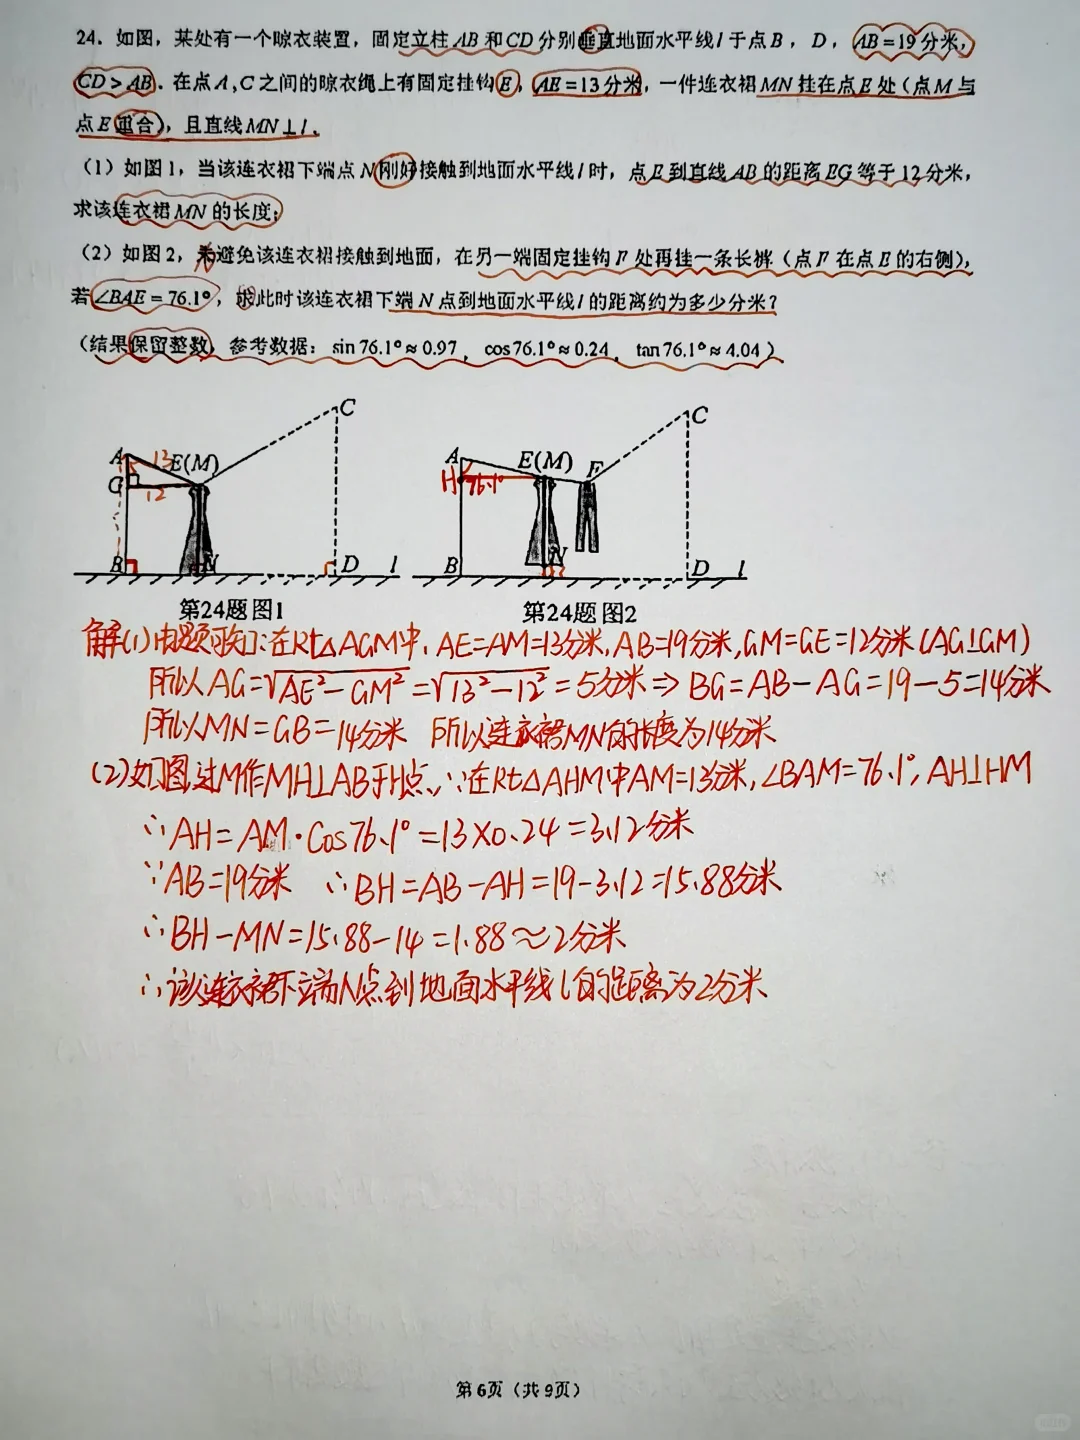 24. 如图，某处有一个晾衣装置，固定立柱AB和CD分别垂直地面水平线l于点B，D，AB=19分米，
CD>AB．在点A，C之间的晾衣绳上有固定挂钩E，AE=13分米，一件连衣裙MN挂在点E处（点M与
点E重合），且直线MN⊥l．
（1）如图1，当该连衣裙下端点N刚好接触到地面水平线l时，点E到直线AB的距离EG等于12分米，
求该连衣裙MN的长度；
（2）如图2，为避免该连衣裙接触到地面，在另一端固定挂钩F处再挂一条长裤（点F在点E的右侧），
若∠BAE=76.1°，求此时该连衣裙下端N点到地面水平线l的距离约为多少分米？
（结果保留整数，参考数据：sin76.1°≈0.97，cos76.1°≈0.24，tan76.1°≈4.04）
A 13 E(M) C
G 12
5
B N D l
A E(M) F C
H 76.1°
B N D l
第24题图1 第24题图2
解(1)由题可知:在Rt△AGM中,AE=AM=13分米,AB=19分米,GM=GE=12分米(AG⊥GM)
所以AG=√AE²-GM²=√13²-12²=5分米⇒BG=AB-AG=19-5=14分米
所以MN=GB=14分米 所以连衣裙MN的长度为14分米
(2)如图过M作MH⊥AB于H点,∵在Rt△AHM中AM=13分米,∠BAM=76.1°,AH⊥HM
∴AH=AM·Cos76.1°=13×0.24=3.12分米
∵AB=19分米 ∴BH=AB-AH=19-3.12=15.88分米
∴BH-MN=15.88-14=1.88≈2分米
∴该连衣裙下端N点到地面水平线l的距离为2分米
第6页（共9页）